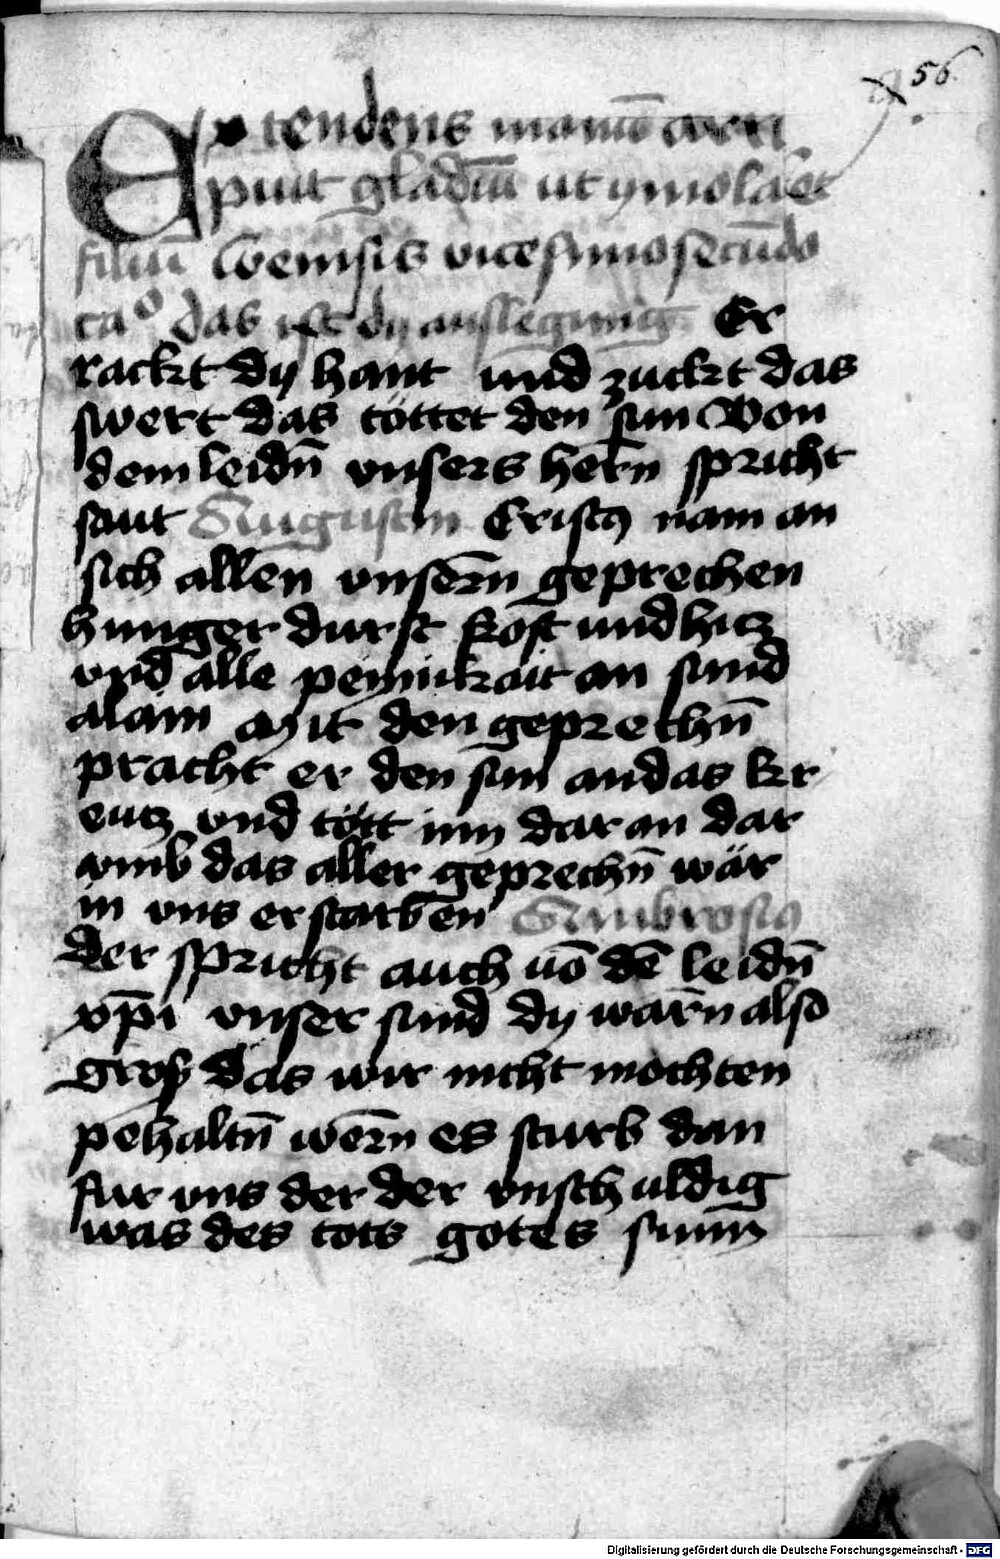 56.
Extendens manū arri
puit gladiū ut ymolaret
filiū Genesis vicesimosecūdo
caº das ist dy auslegung Er
rackt dy hant und zuckt das
swert das töttet den sun Von
dem leidn̄ vnsers hern̄ spricht
sant Augustin Cristꝯ nam an
sich allen vnsern̄ geprechen
hunger durst kost und hicz
vnd alle peinikait an sund
alain Mit den geprechn̄
pracht er den sun an das kr
eucz vnd tött inn dar an dar
vmb das aller geprechn̄ wär
in vns erstarben Ambrosiꝯ
der spricht auch vō dē leidn̄
xp̄i vnser sund dy warn̄ also
gros das wir nicht mochten
pehaltn̄ wern̄ es sturb dan
fur vns der der vnschuldig
was des tots gotes sunn
Digitalisierung gefördert durch die Deutsche Forschungsgemeinschaft - DFG